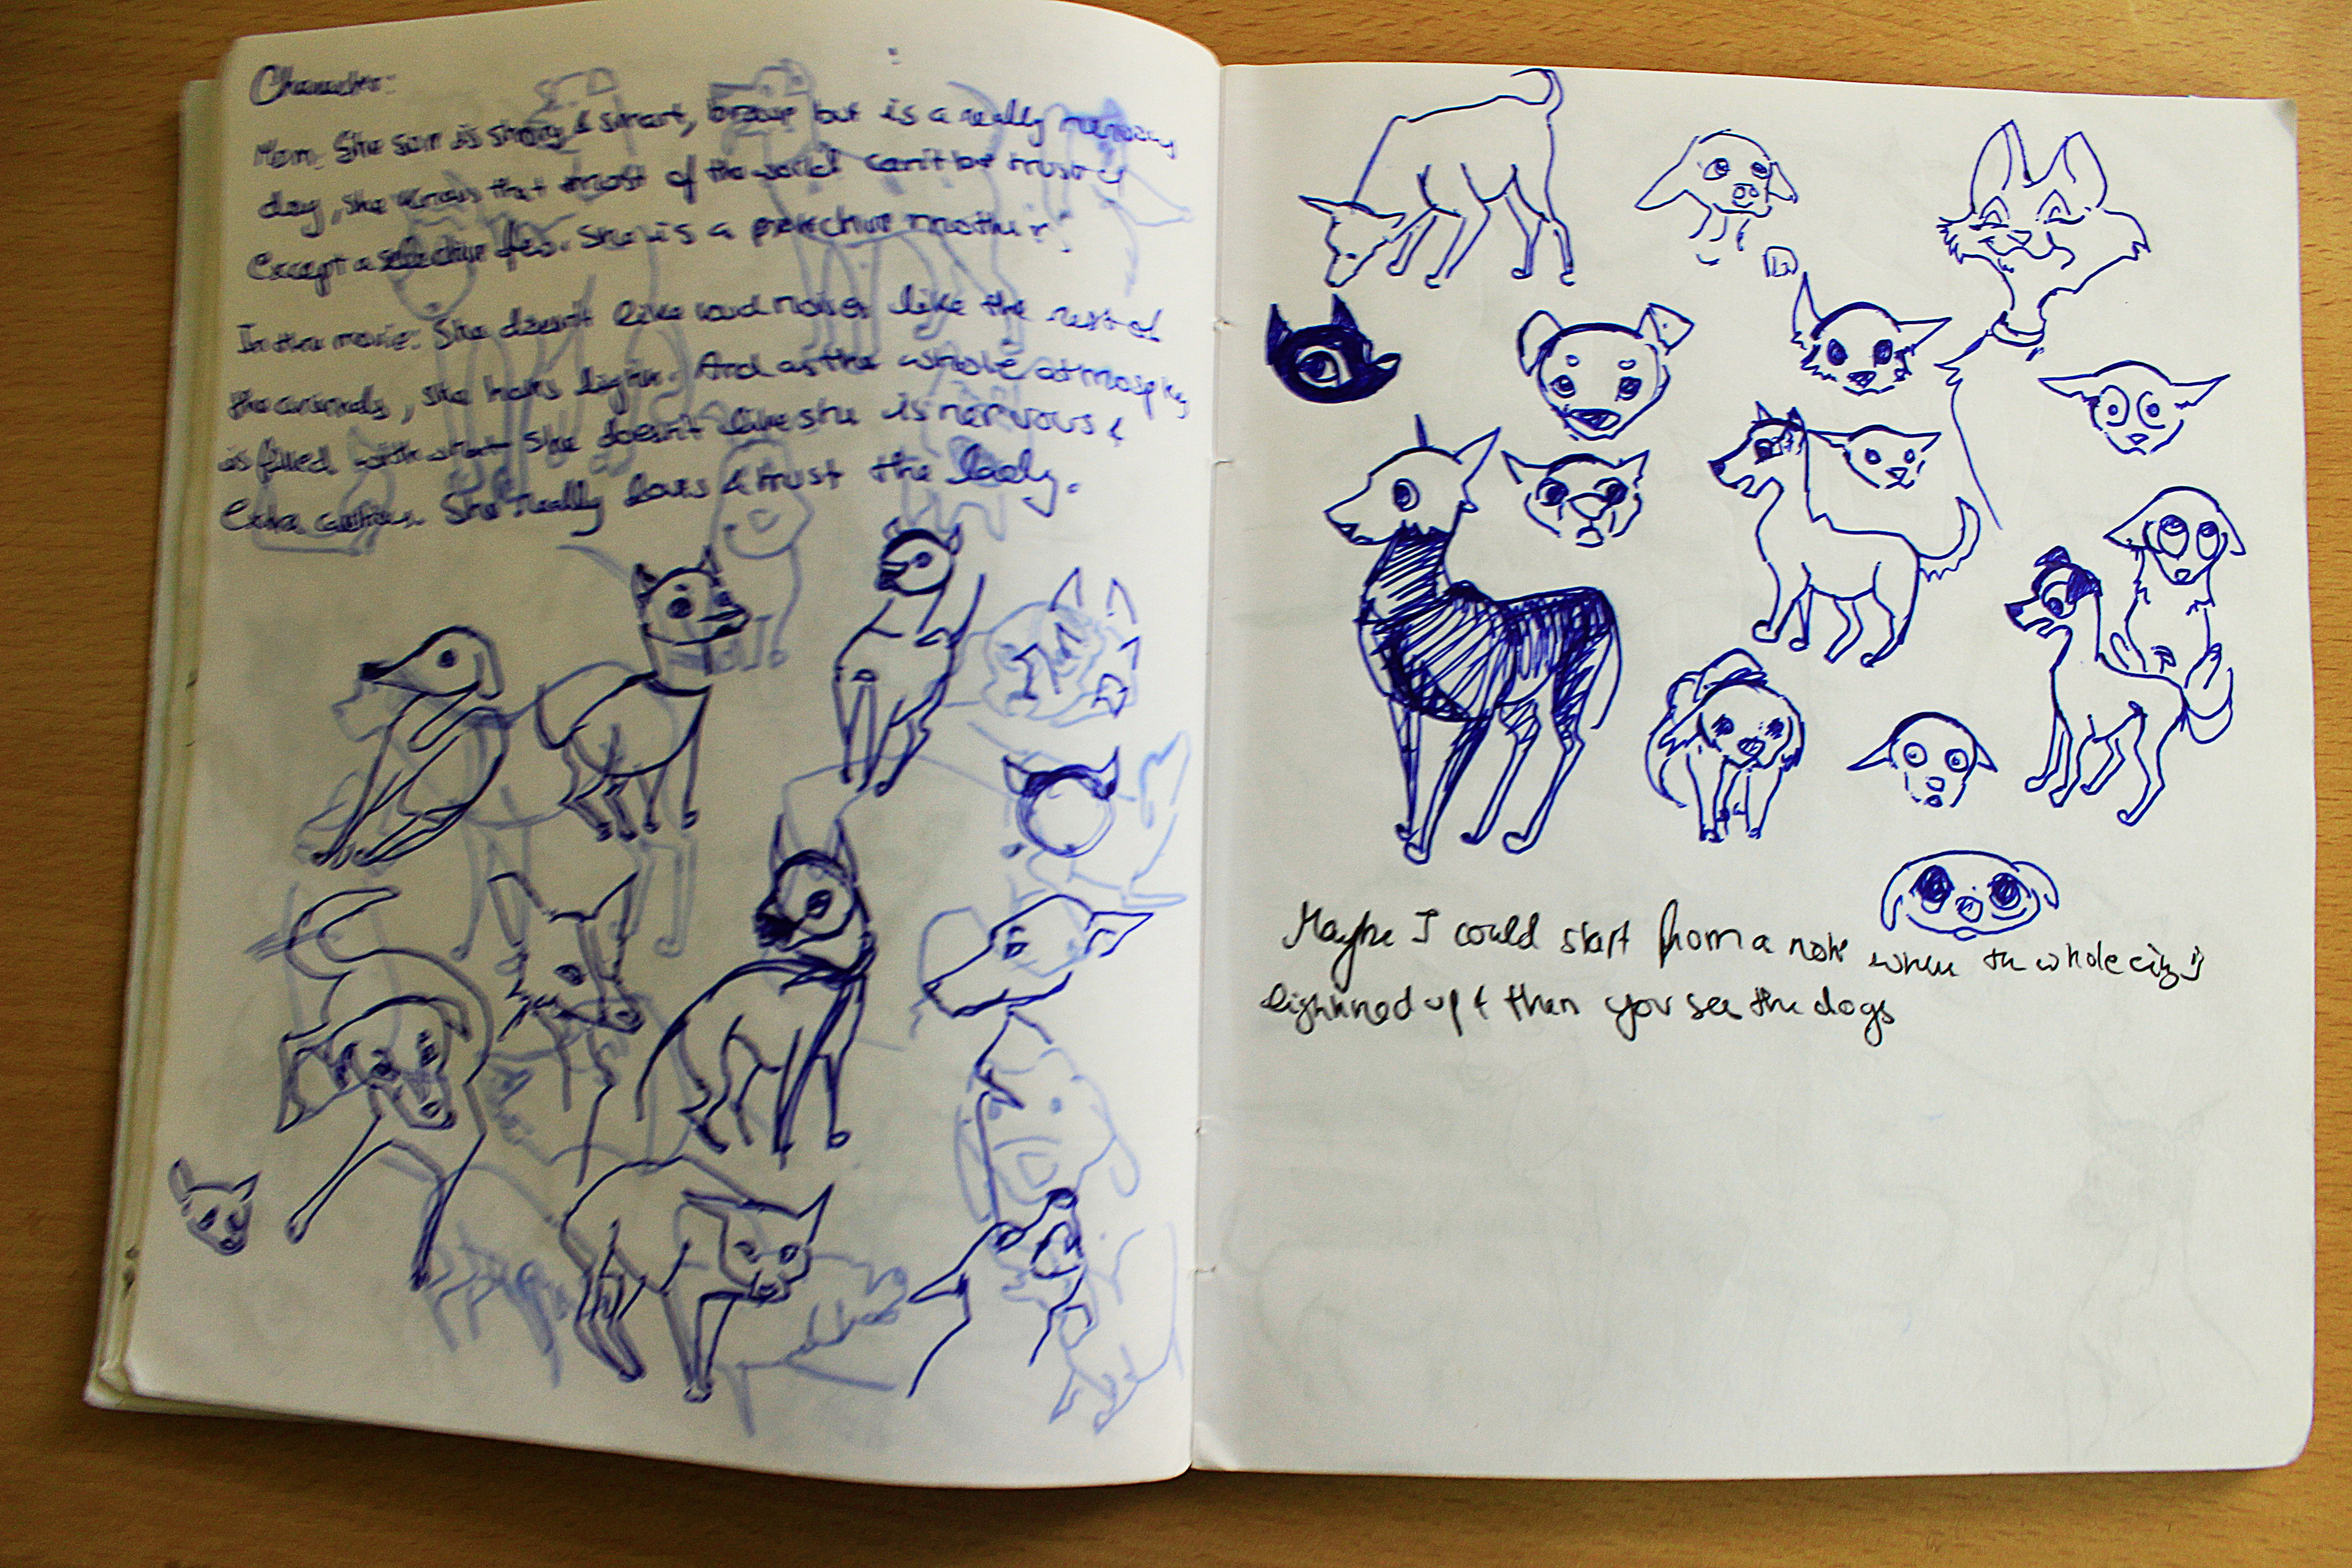 Character:
Mom: She is strong & smart, but is a really nervous
dog, she knows that most of the world can't be trusted
Except a few. She is a mother.
In the movie: She doesn't like loud noises like the rest of
the animals, she hates light. And as the whole atmosphere
is filled with what she doesn't like she is nervous &
Extra cautious. She really loves & trust the lady.
Maybe I could start from a note when the whole city is
lightned up & then you see the dogs